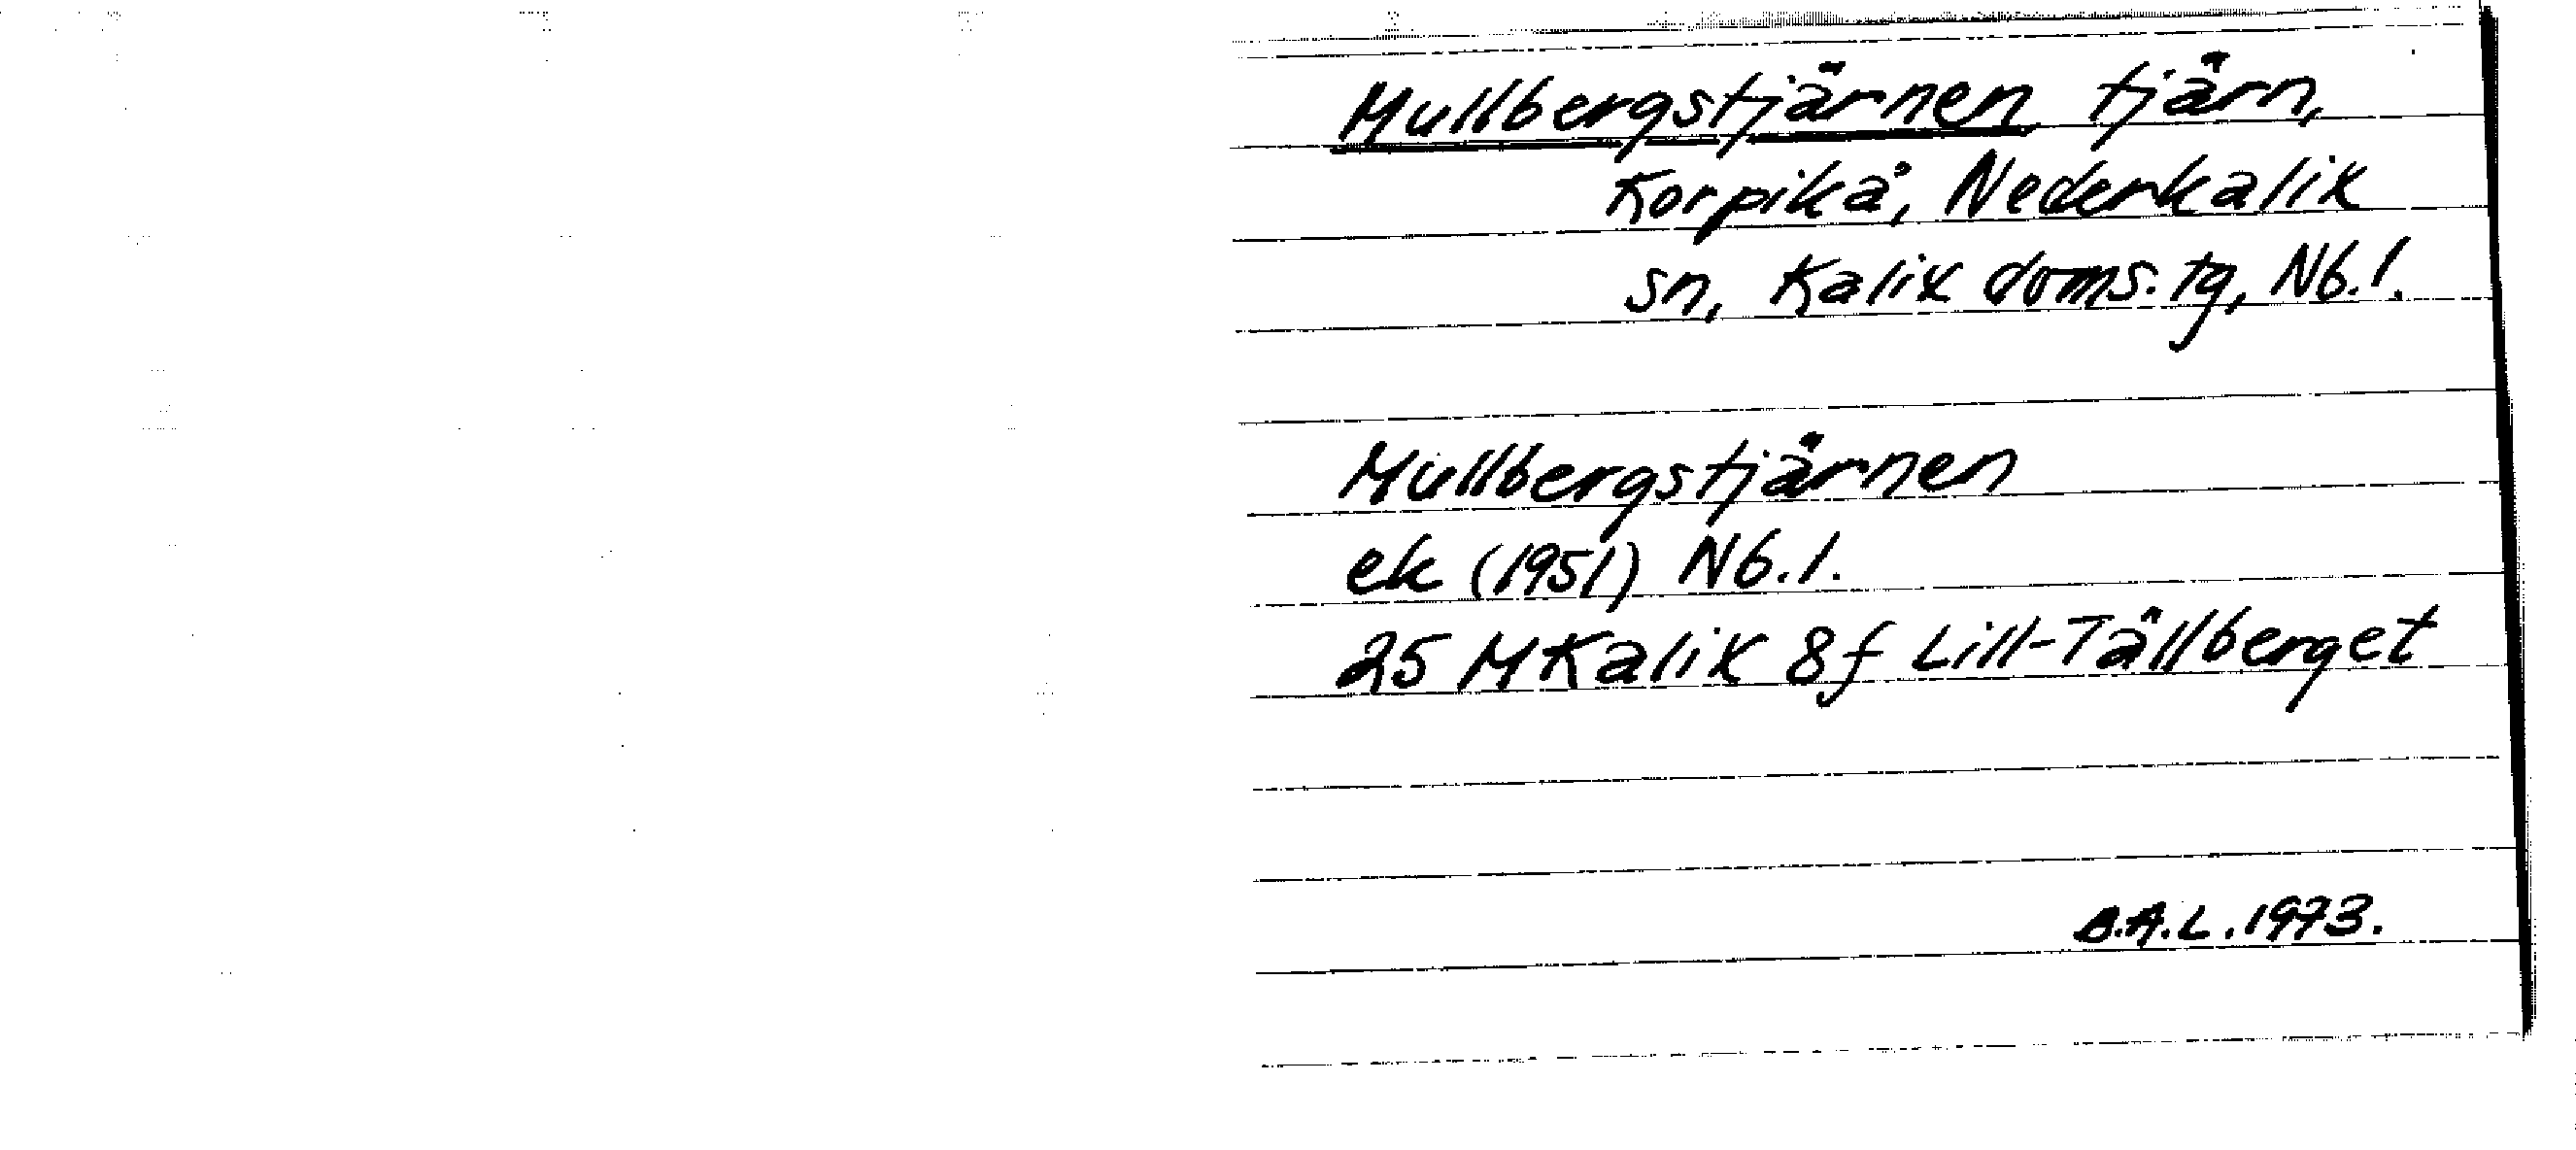 Mullbergstjärnen, tjärn,
Korpikå, Nederkalix
sn, Kalix doms.tg, Nb.l.
Mullbergstjärnen
ek (1951) Nb.l.
25 M Kalix 8f Lill-Tällberget
B.A.L. 1973.